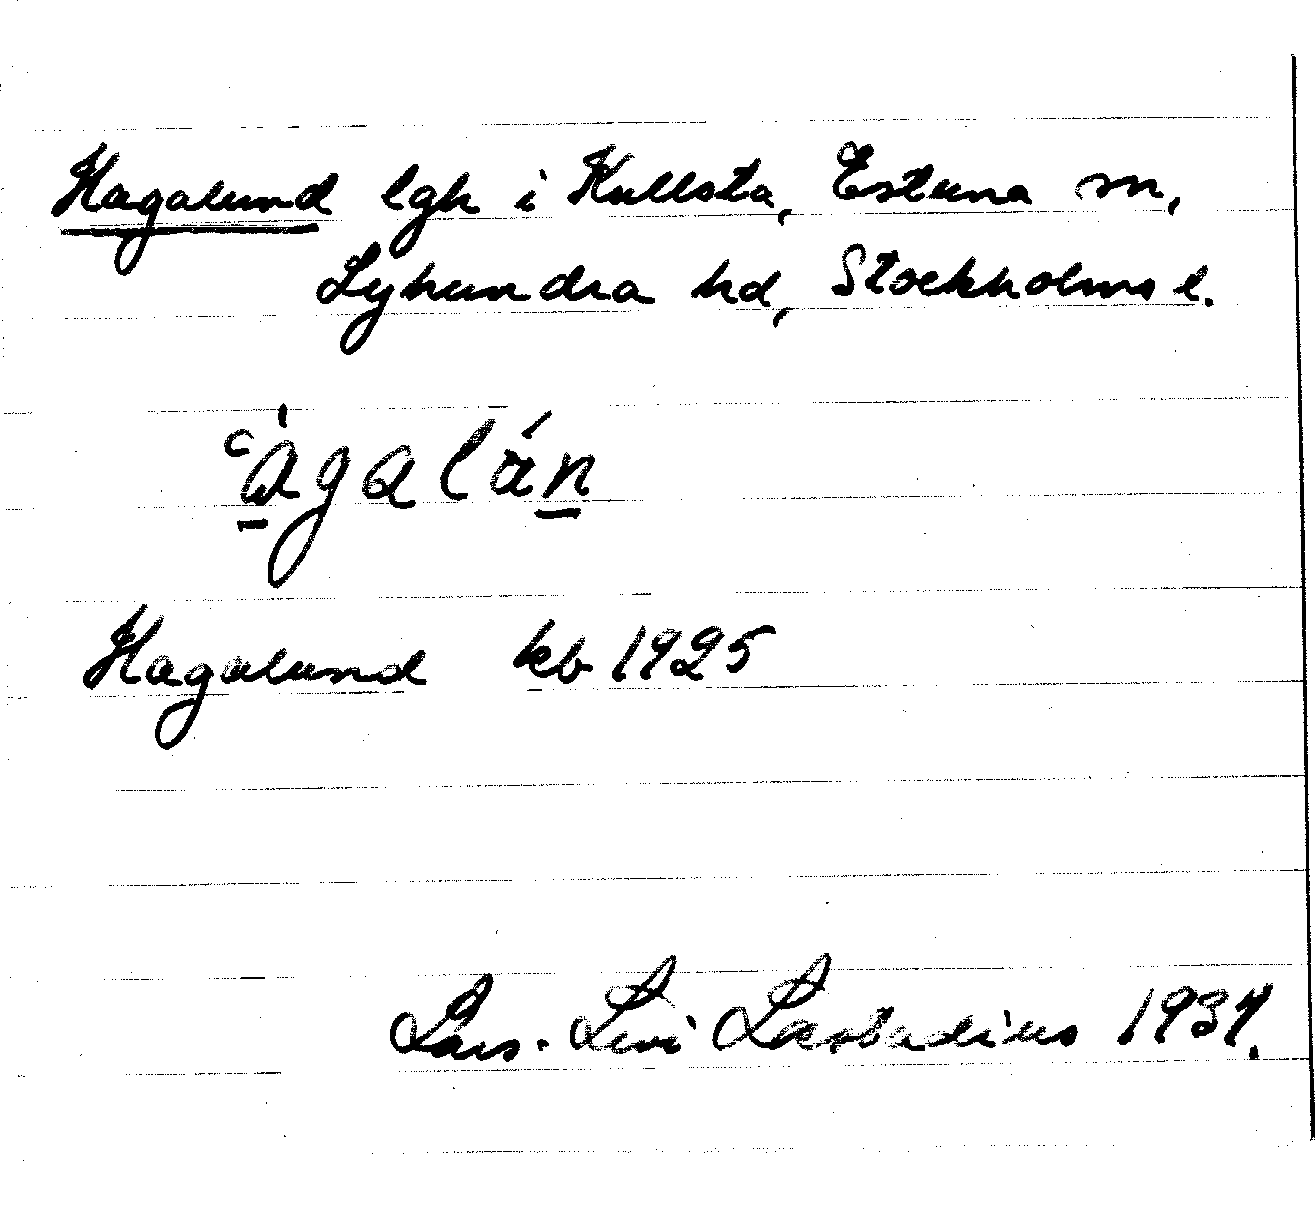 Hagalund lgh i Kullsta, Estuna sn,
Lyhundra hd, Stockholms l.
ʿa̱̍galáṉ
Hagalund kb 1925
Lars-Levi Læstadius 1937.